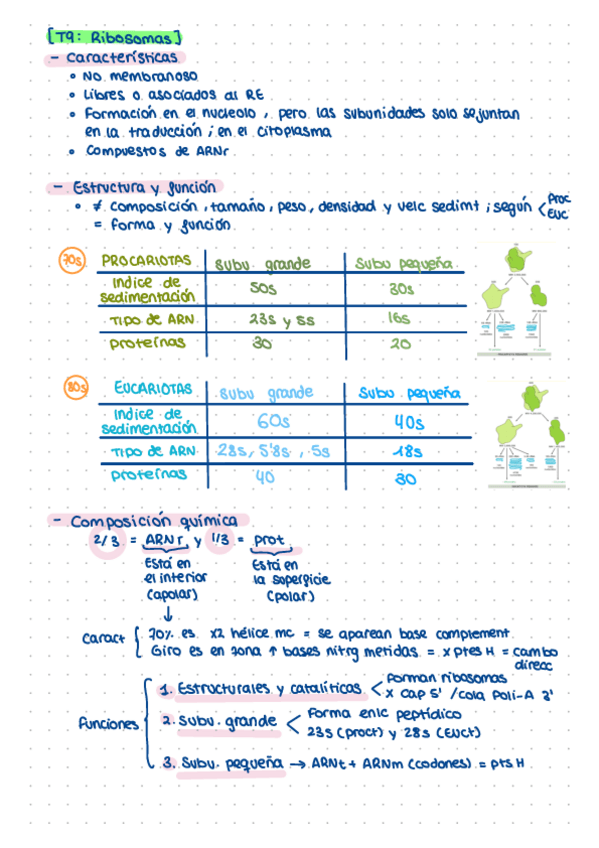 [T9: Ribosomas]
- Características
• No membranoso
• Libres o asociados al RE
• Formación en el nucleolo, pero las subunidades solo se juntan
en la traducción; en el citoplasma
• Compuestos de ARNr
- Estructura y función
• ≠ composición, tamaño, peso, densidad y velc sedimt; según < Proc
Euc
= forma y función
70s PROCARIOTAS | subu. grande | subu pequeña
Indice de sedimentación | 50s | 30s
TIPO de ARN | 23s y 5s | 16s
proteínas | 30 | 20
80s EUCARIOTAS | subu grande | subu. pequeña
Indice de sedimentación | 60s | 40s
TIPO de ARN | 28s, 5'8s, 5s | 18s
proteínas | 40 | 30
- Composición química
2/3 = ARNr y 1/3 = prot
Está en el interior (apolar)
Está en la superficie (polar)
↓
Caract { 70% es x2 hélice mc = se aparean base complement.
Giro es en zona ↑ bases nitrg metidas = x ptes H = cambo
direcc
Funciones
1. Estructurales y catalíticas < Forman ribosomas
x cap 5' / cola Poli-A 3'
2. Subu. grande < Forma enlc peptídico
23s (Proct) y 28s (Euct)
3. Subu. pequeña → ARNt + ARNm (codones) = pts H